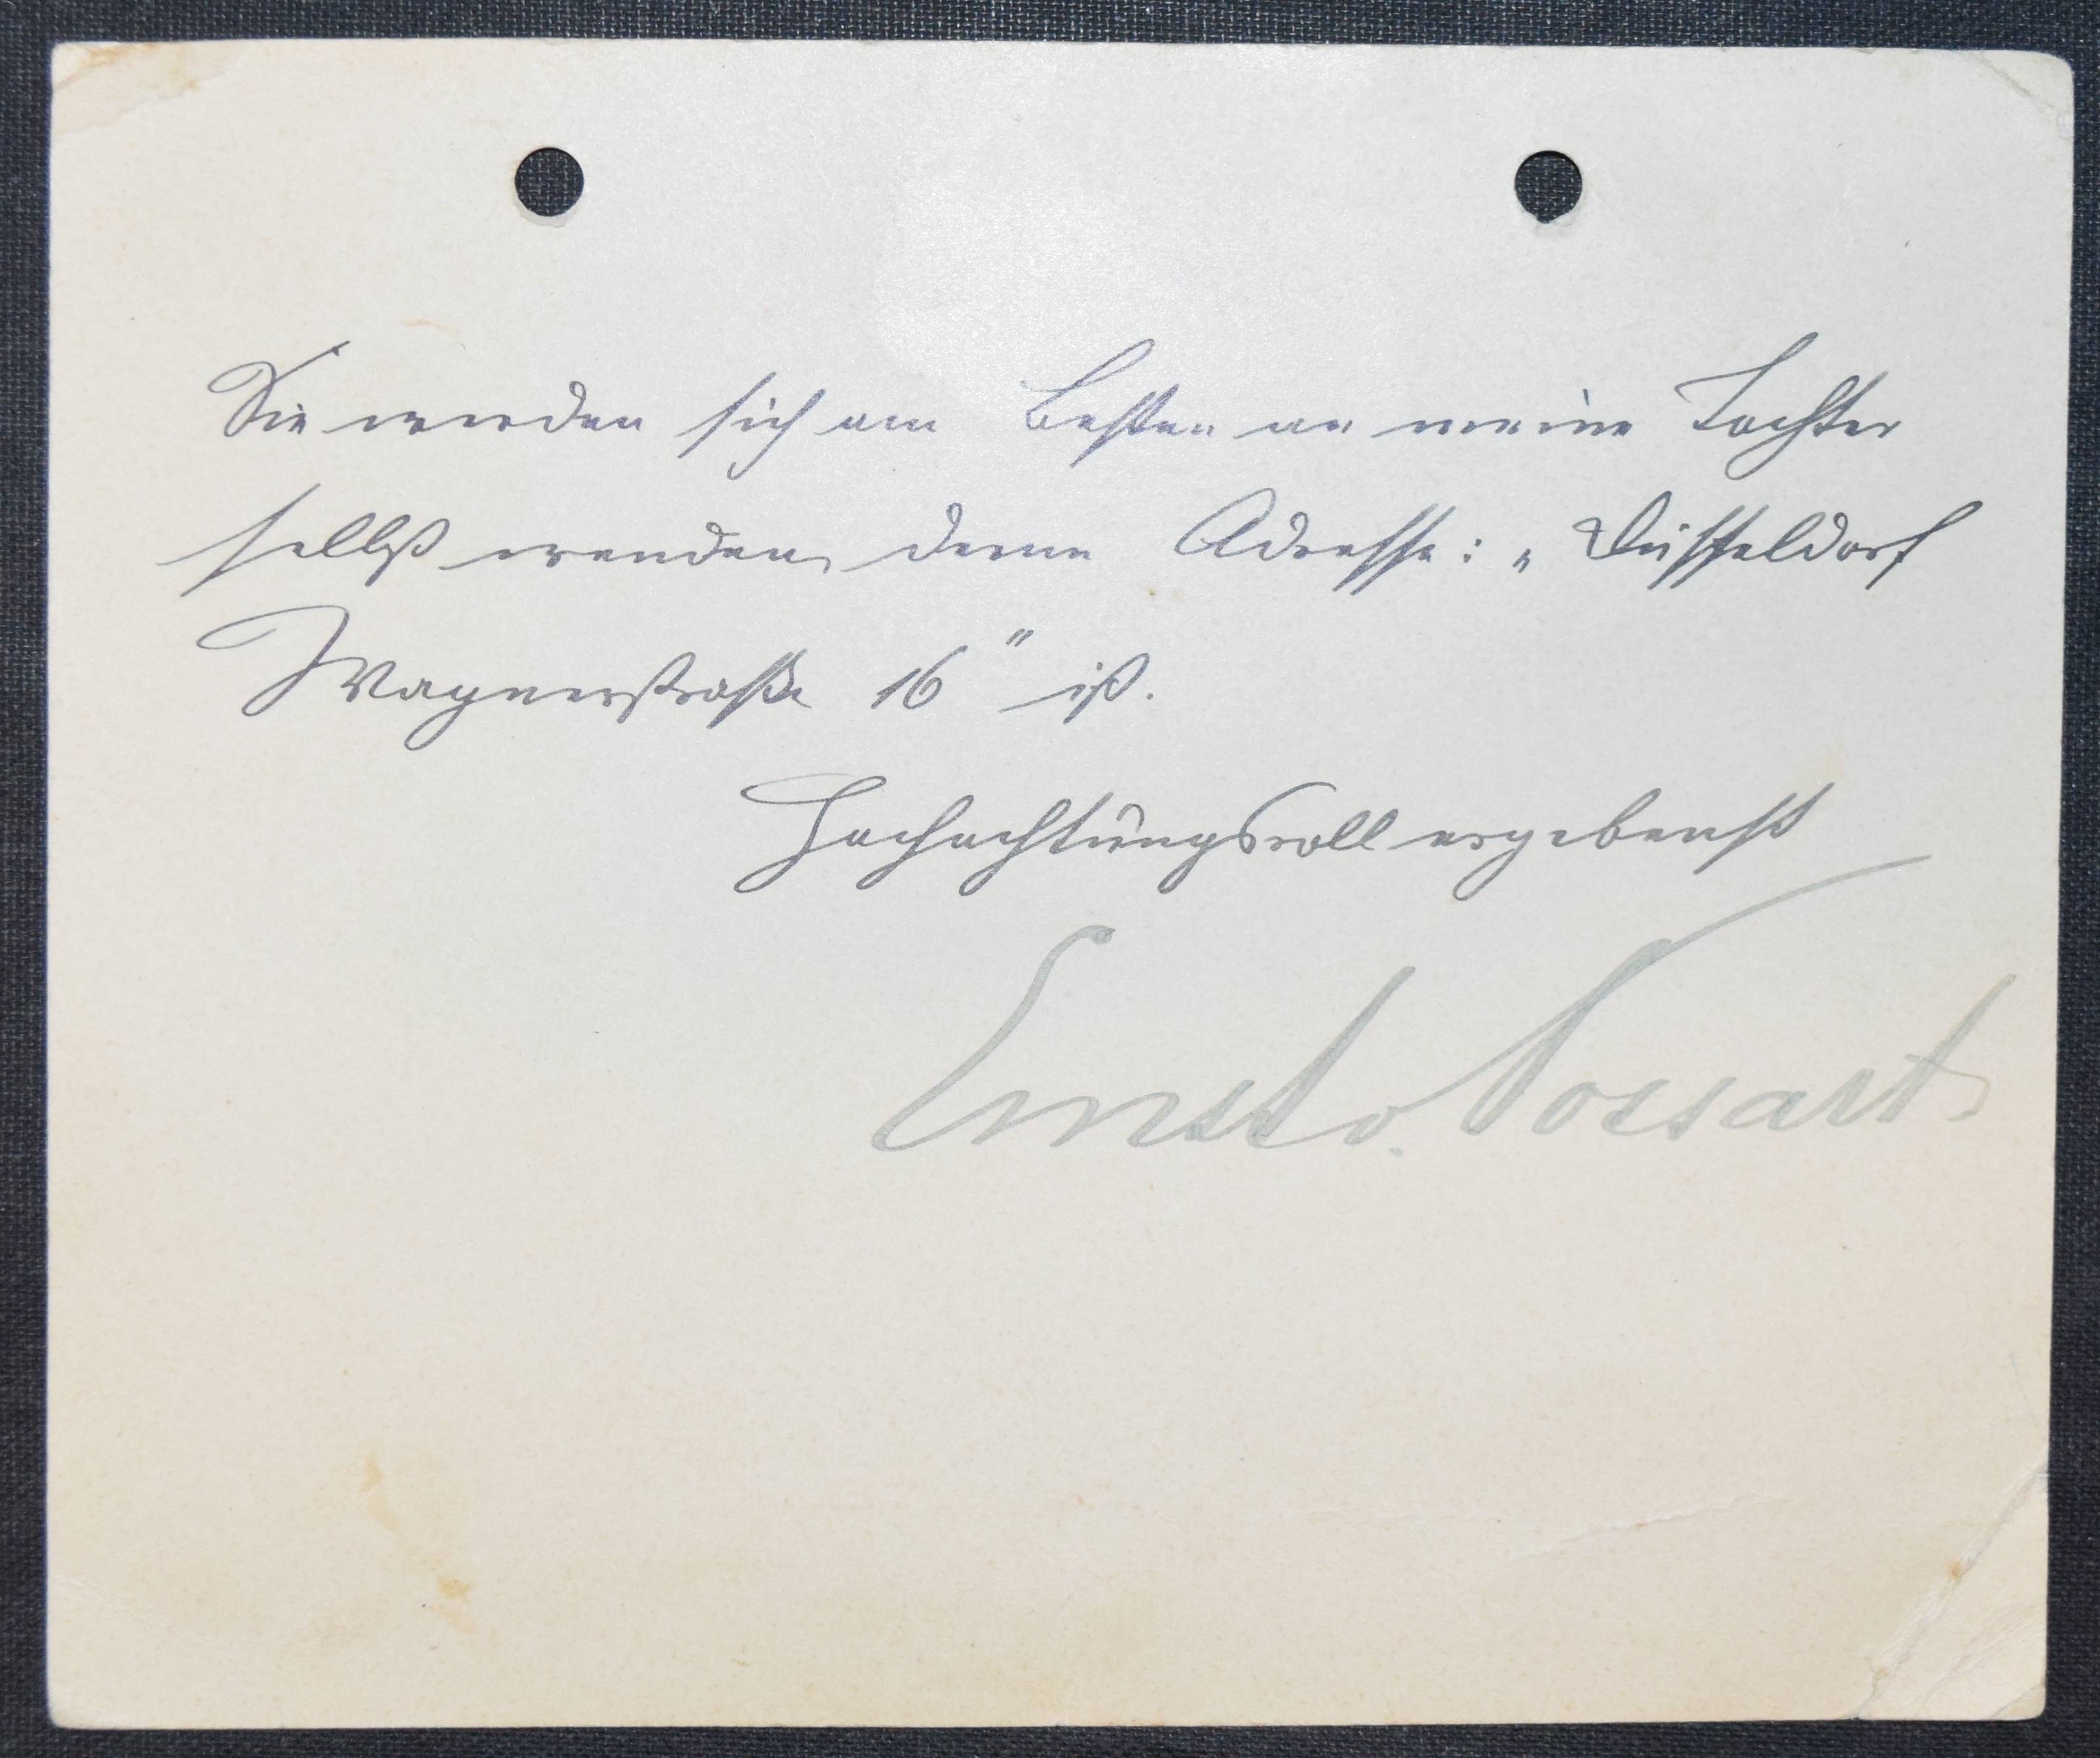 Sie werden sich am Besten an meine Tochter
selbst wenden, deren Adresse: „Düsseldorf
Wagnerstraße 16" ist.
Hochachtungsvoll ergebenst
Ernst v. Possart